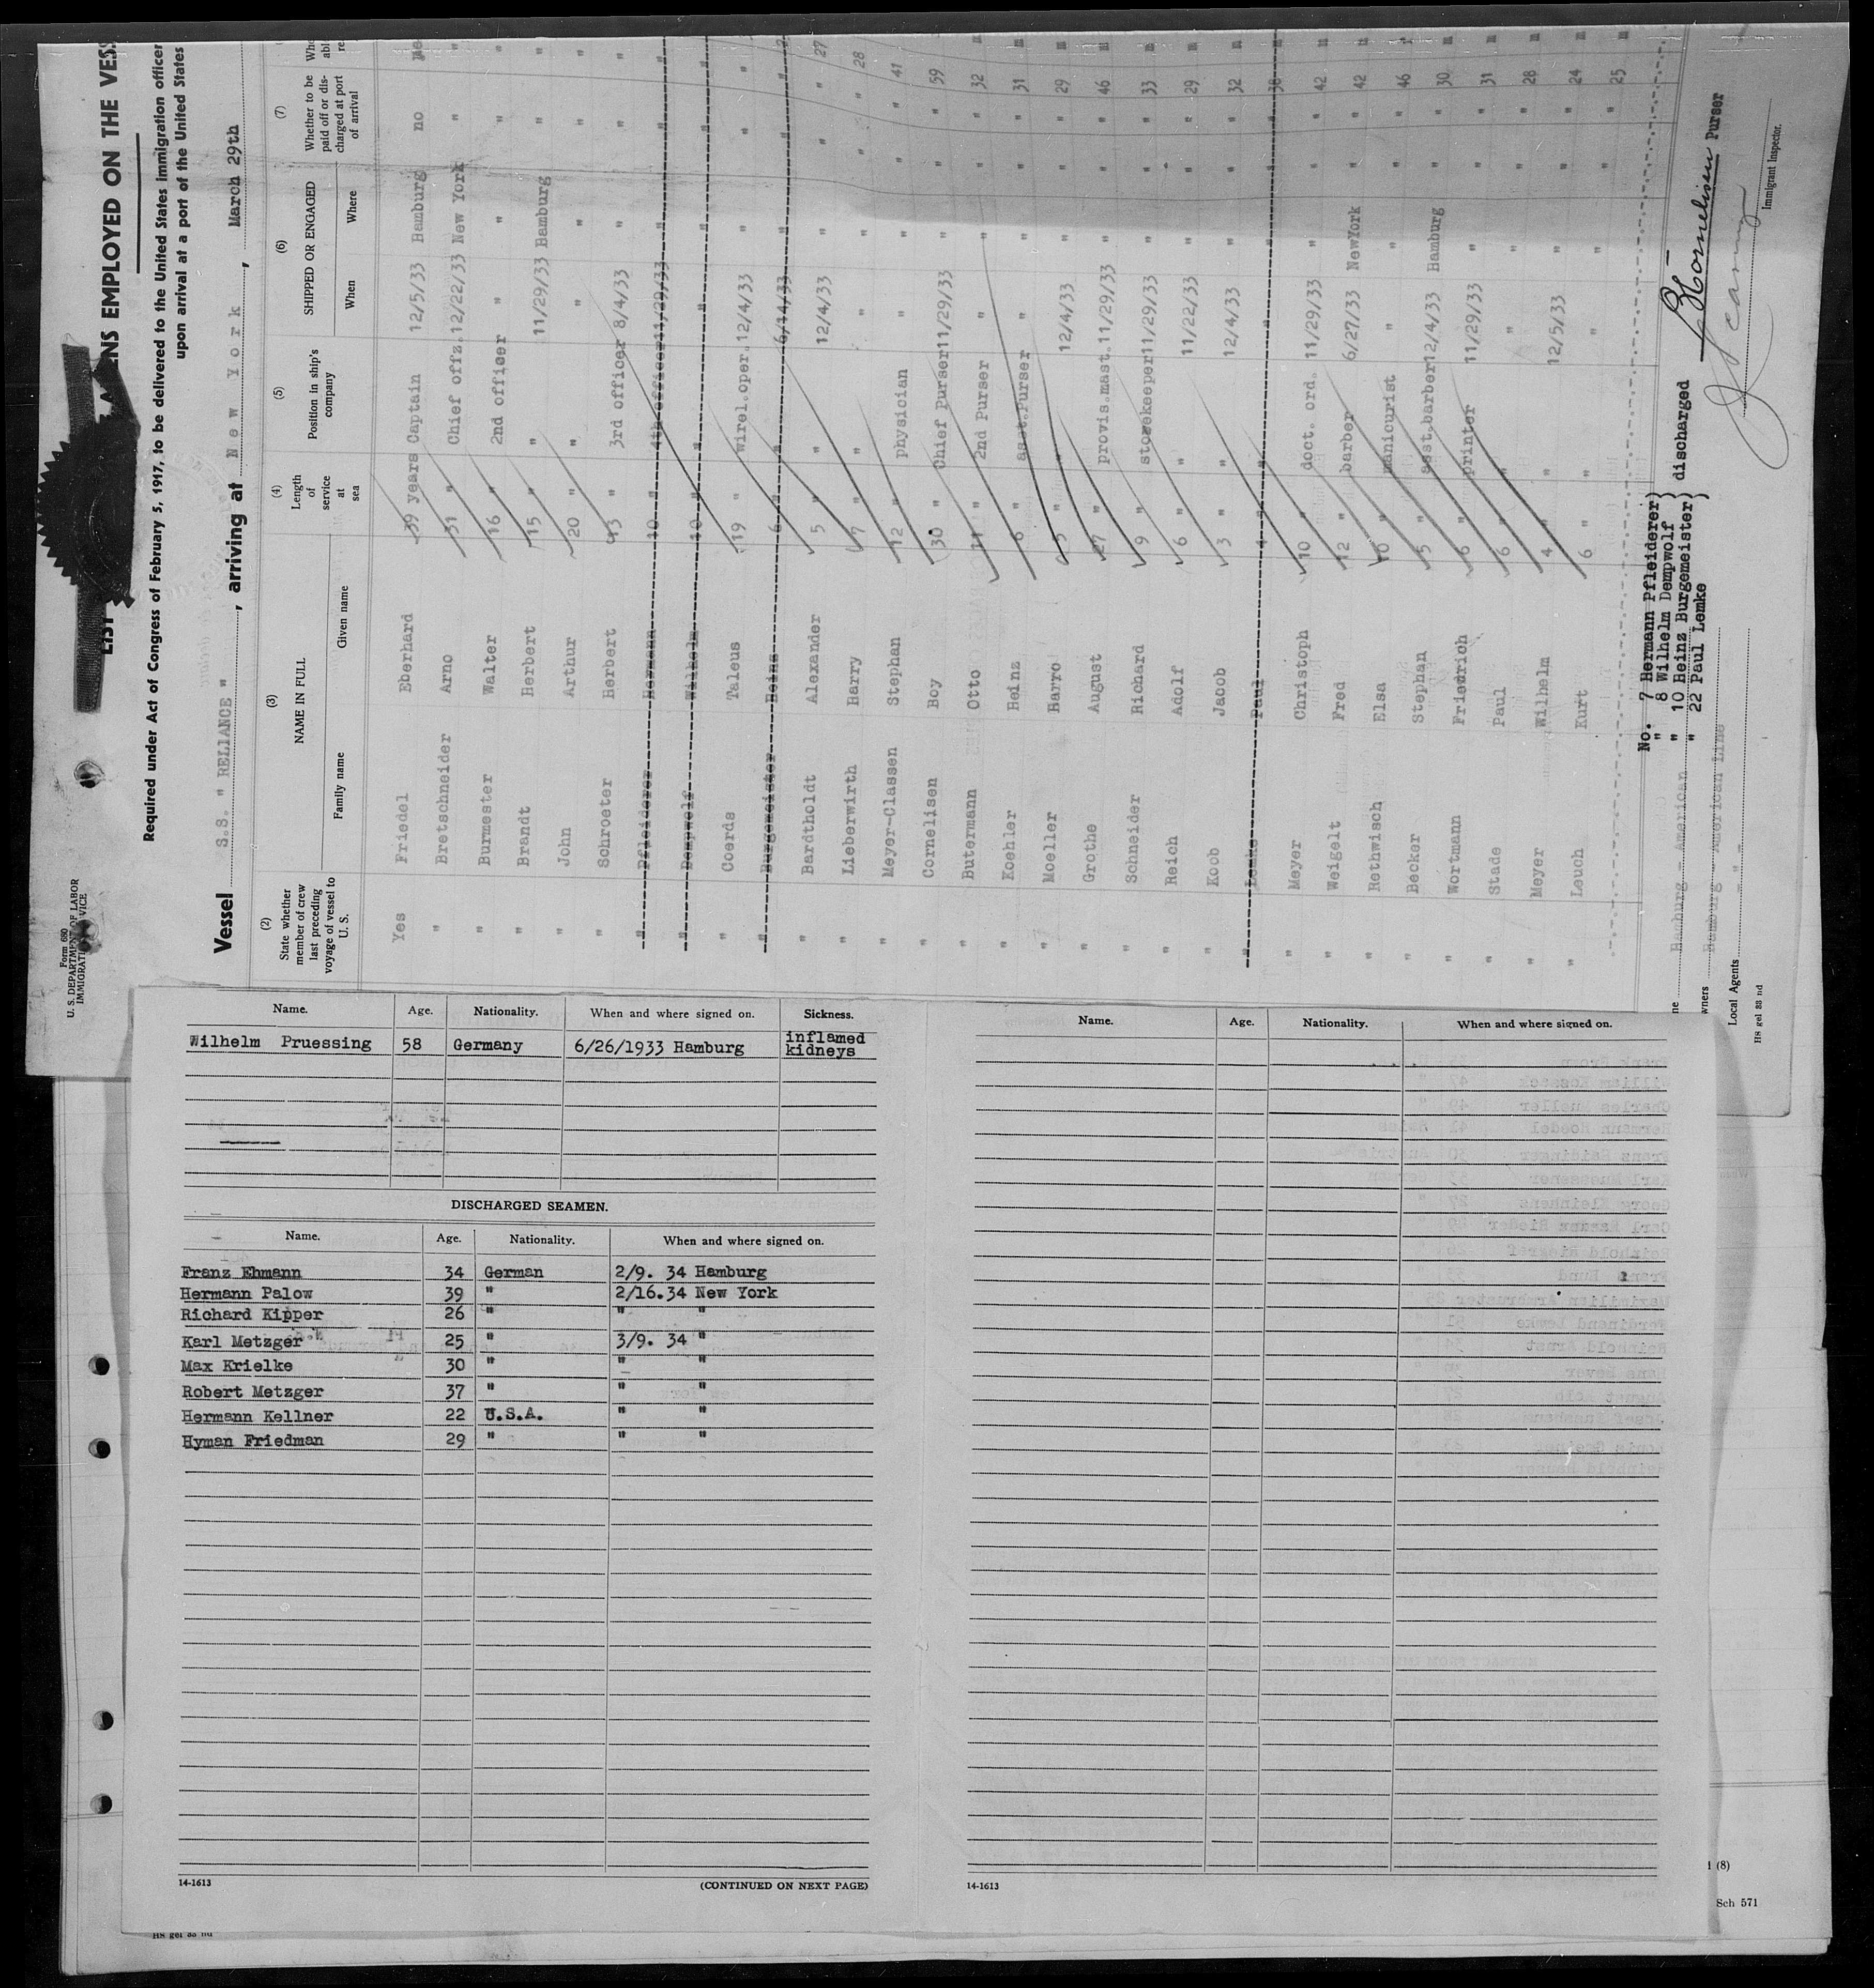 Form 680
U. S. DEPARTMENT OF LABOR
IMMIGRATION SERVICE
LIST ALIENS EMPLOYED ON THE VESS
Required under Act of Congress of February 5, 1917, to be delivered to the United States immigration officer
upon arrival at a port of the United States
Vessel S.S. " RELIANCE " , arriving at New York , March 29th
(2) State whether member of crew last preceding voyage of vessel to U. S.
(3) NAME IN FULL
Family name Given name
(4) Length of service at sea
(5) Position in ship's company
(6) SHIPPED OR ENGAGED
When Where
(7) Whether to be paid off or discharged at port of arrival
Yes Friedel Eberhard 39 years Captain 12/5/33 Hamburg no
" Bretschneider Arno 31 " Chief offz. 12/22/33 New York "
" Burmester Walter 16 " 2nd officer " " "
" Brandt Herbert 15 " " 11/29/33 Hamburg "
" John Arthur 20 " " " " "
" Schroeter Herbert 13 " 3rd officer 8/4/33 " "
" Pfleiderer Hermann 10 " 4th officer 11/29/33 " "
" Dempwolf Wilhelm 10 " " " " "
" Coerds Taleus 19 " wirel.oper. 12/4/33 " " "
" Burgemeister Heinz 6 " " 6/14/33 " " "
" Bardtholdt Alexander 5 " " 12/4/33 " " " 27
" Lieberwirth Harry 7 " " " " " " 28
" Meyer-Classen Stephan 12 " physician " " " " 41
" Cornelisen Boy 30 " Chief Purser 11/29/33 " " " 59
" Butermann Otto 11 " 2nd Purser " " " " 32
" Koehler Heinz 6 " asst.Purser " " " " 31
" Moeller Harro 5 " " 12/4/33 " " " 29
" Grothe August 27 " provis.mast. 11/29/33 " " " 46
" Schneider Richard 9 " storekeeper 11/29/33 " " " 33
" Reich Adolf 6 " " 11/22/33 " " " 29
" Koob Jacob 3 " " 12/4/33 " " " 32
" Lemke Paul 4 " " " " " " 38
" Meyer Christoph 10 " doct. ord. 11/29/33 " " " 42
" Weigelt Fred 12 " barber 6/27/33 NewYork " " 42
" Rethwisch Elsa 10 " manicurist " " " " 46
" Becker Stephan 5 " asst.barber 12/4/33 Hamburg " " 30
" Wortmann Friedrich 6 " printer 11/29/33 " " " 31
" Stade Paul 6 " " " " " " 28
" Meyer Wilhelm 4 " " 12/5/33 " " " 24
" Leuch Kurt 6 " " " " " " 25
No. 7 Hermann Pfleiderer
" 8 Wilhelm Dempwolf
" 10 Heinz Burgemeister
" 22 Paul Lemke
discharged
Cornelisen Purser
Immigrant Inspector.
Hamburg - American
Hamburg - American Line
Local Agents " - "
HS gel 33 nd
Name. Age. Nationality. When and where signed on. Sickness.
Wilhelm Pruessing 58 Germany 6/26/1933 Hamburg inflamed kidneys
DISCHARGED SEAMEN.
Name. Age. Nationality. When and where signed on.
Franz Ehmann 34 German 2/9. 34 Hamburg
Hermann Palow 39 " 2/16.34 New York
Richard Kipper 26 " " "
Karl Metzger 25 " 3/9. 34 "
Max Krielke 30 " " "
Robert Metzger 37 " " "
Hermann Kellner 22 U.S.A. " "
Hyman Friedman 29 " " "
14-1613 (CONTINUED ON NEXT PAGE)
Name. Age. Nationality. When and where signed on.
14-1613
1 (8)
Sch 571
HS gel 33 nd